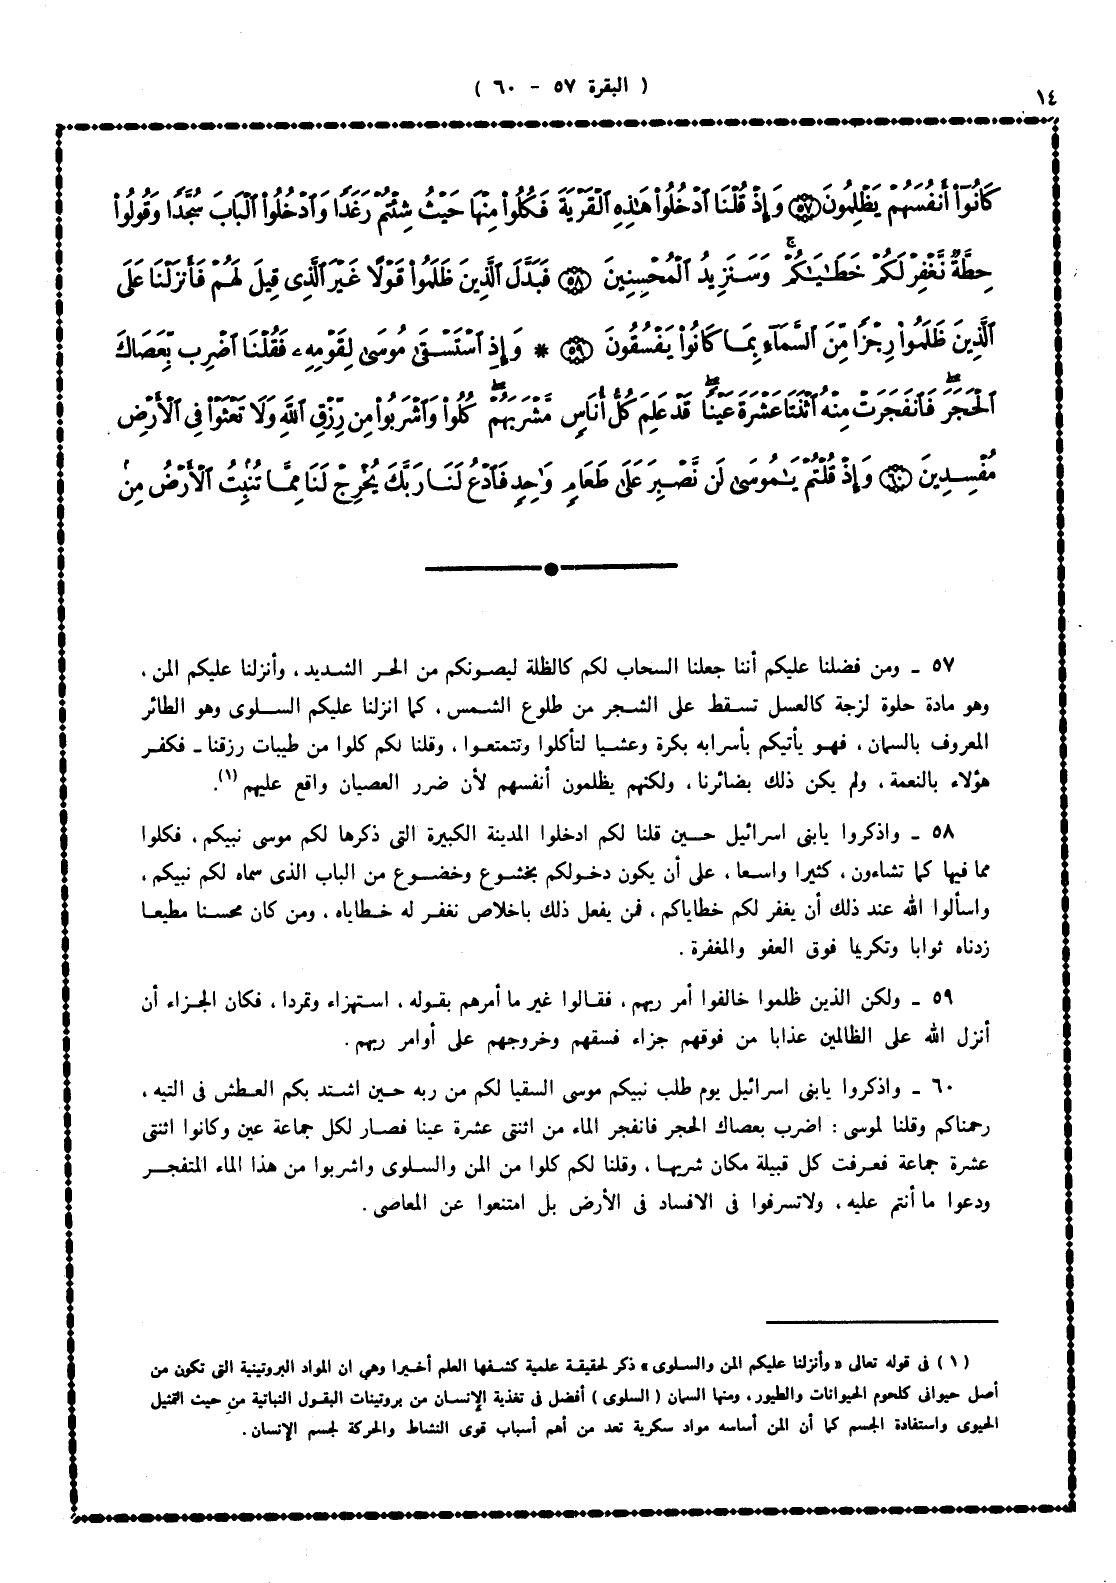 ( البقرة ٥٧ - ٦٠ )
١٤
كَانُوٓا۟ أَنفُسَهُمْ يَظْلِمُونَ ﴿٥٧﴾ وَإِذْ قُلْنَا ٱدْخُلُوا۟ هَٰذِهِ ٱلْقَرْيَةَ فَكُلُوا۟ مِنْهَا حَيْثُ شِئْتُمْ رَغَدًا وَٱدْخُلُوا۟ ٱلْبَابَ سُجَّدًا وَقُولُوا۟
حِطَّةٌ نَّغْفِرْ لَكُمْ خَطَٰيَٰكُمْ ۚ وَسَنَزِيدُ ٱلْمُحْسِنِينَ ﴿٥٨﴾ فَبَدَّلَ ٱلَّذِينَ ظَلَمُوا۟ قَوْلًا غَيْرَ ٱلَّذِى قِيلَ لَهُمْ فَأَنزَلْنَا عَلَى
ٱلَّذِينَ ظَلَمُوا۟ رِجْزًا مِّنَ ٱلسَّمَآءِ بِمَا كَانُوا۟ يَفْسُقُونَ ﴿٥٩﴾ * وَإِذِ ٱسْتَسْقَىٰ مُوسَىٰ لِقَوْمِهِۦ فَقُلْنَا ٱضْرِب بِّعَصَاكَ
ٱلْحَجَرَ ۖ فَٱنفَجَرَتْ مِنْهُ ٱثْنَتَا عَشْرَةَ عَيْنًا ۖ قَدْ عَلِمَ كُلُّ أُنَاسٍ مَّشْرَبَهُمْ ۖ كُلُوا۟ وَٱشْرَبُوا۟ مِن رِّزْقِ ٱللَّهِ وَلَا تَعْثَوْا۟ فِى ٱلْأَرْضِ
مُفْسِدِينَ ﴿٦٠﴾ وَإِذْ قُلْتُمْ يَٰمُوسَىٰ لَن نَّصْبِرَ عَلَىٰ طَعَامٍ وَٰحِدٍ فَٱدْعُ لَنَا رَبَّكَ يُخْرِجْ لَنَا مِمَّا تُنۢبِتُ ٱلْأَرْضُ مِنۢ
٥٧ ـ ومن فضلنا عليكم أننا جعلنا السحاب لكم كالظلة ليصونكم من الحر الشديد ، وأنزلنا عليكم المن ،
وهو مادة حلوة لزجة كالعسل تسقط على الشجر من طلوع الشمس ، كما انزلنا عليكم السلوى وهو الطائر
المعروف بالسمان ، فهو يأتيكم بأسرابه بكرة وعشيا لتأكلوا وتتمتعوا ، وقلنا لكم كلوا من طيبات رزقنا ـ فكفر
هؤلاء بالنعمة ، ولم يكن ذلك بضائرنا ، ولكنهم يظلمون أنفسهم لأن ضرر العصيان واقع عليهم (١).
٥٨ ـ واذكروا يابنى اسرائيل حين قلنا لكم ادخلوا المدينة الكبيرة التى ذكرها لكم موسى نبيكم ، فكلوا
مما فيها كما تشاءون ، كثيرا واسعا ، على أن يكون دخولكم بخشوع وخضوع من الباب الذى سماه لكم نبيكم ،
واسألوا الله عند ذلك أن يغفر لكم خطاياكم ، فمن يفعل ذلك باخلاص نغفر له خطاياه ، ومن كان محسنا مطيعا
زدناه ثوابا وتكريما فوق العفو والمغفرة .
٥٩ ـ ولكن الذين ظلموا خالفوا أمر ربهم ، فقالوا غير ما أمرهم بقوله ، استهزاء وتمردا ، فكان الجزاء أن
أنزل الله على الظالمين عذابا من فوقهم جزاء فسقهم وخروجهم على أوامر ربهم .
٦٠ ـ واذكروا يابنى اسرائيل يوم طلب نبيكم موسى السقيا لكم من ربه حين اشتد بكم العطش فى التيه ،
رحمناكم وقلنا لموسى : اضرب بعصاك الحجر فانفجر الماء من اثنتى عشرة عينا فصار لكل جماعة عين وكانوا اثنتى
عشرة جماعة فعرفت كل قبيلة مكان شربها ، وقلنا لكم كلوا من المن والسلوى واشربوا من هذا الماء المتفجر
ودعوا ما أنتم عليه ، ولاتسرفوا فى الافساد فى الأرض بل امتنعوا عن المعاصى .
(١) فى قوله تعالى «وأنزلنا عليكم المن والسلوى» ذكر لحقيقة علمية كشفها العلم أخيرا وهي ان المواد البروتينية التى تكون من
أصل حيوانى كلحوم الحيوانات والطيور ، ومنها السمان (السلوى) أفضل فى تغذية الإنسان من بروتينات البقول النباتية من حيث التمثيل
الحيوى واستفادة الجسم كما أن المن أساسه مواد سكرية تعد من أهم أسباب قوى النشاط والحركة لجسم الإنسان .